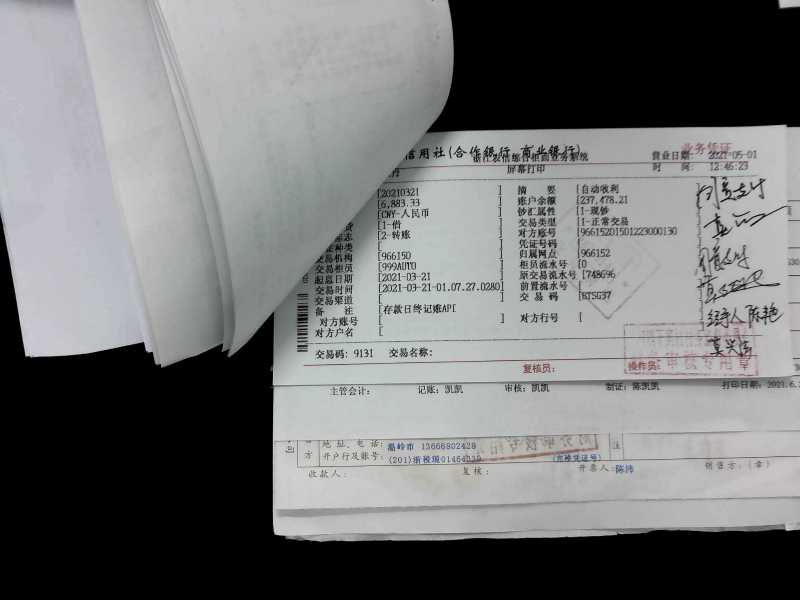 信用社(合作银行、商业银行)
业务凭证
浙江农信综合柜面业务系统
营业日期: 2021-05-01
屏幕打印
时 间: 12:46:23
[20210321 ] 摘 要 [自动收利
[6,883.33 ] 账户余额 [237,478.21
[CNY-人民币 ] 钞汇属性 [1-现钞
[1-借 ] 交易类型 [1-正常交易
标志 [2-转账 ] 对方账号 [966152015012230000130
证种类 [ ] 凭证号码 [
交易机构 [966150 ] 归属网点 [966152
交易柜员 [999AUTO ] 柜员流水号 [0
起息日期 [2021-03-21 ] 原交易流水号 [748G96
交易时间 [2021-03-21-01.07.27.0280] 前置流水号 [
交易渠道 [ ] 交 易 码 [BTSG37
备 注 [存款日终记账API
对方账号 [ ] 对方行号 [
对方户名 [
经手人 陈艳
交易码: 9131 交易名称:
复核员:
操作员:
审核专用章
主管会计:
记账: 凯凯
审核: 凯凯
制证: 陈凯凯
打印日期: 2021.6.
方
地址、电话: 温岭市 13666802428
开户行及账号: (201)浙税缴01464339
(完税凭证号)
注
收款人:
复核:
开票人: 陈炜
销售方: (章)